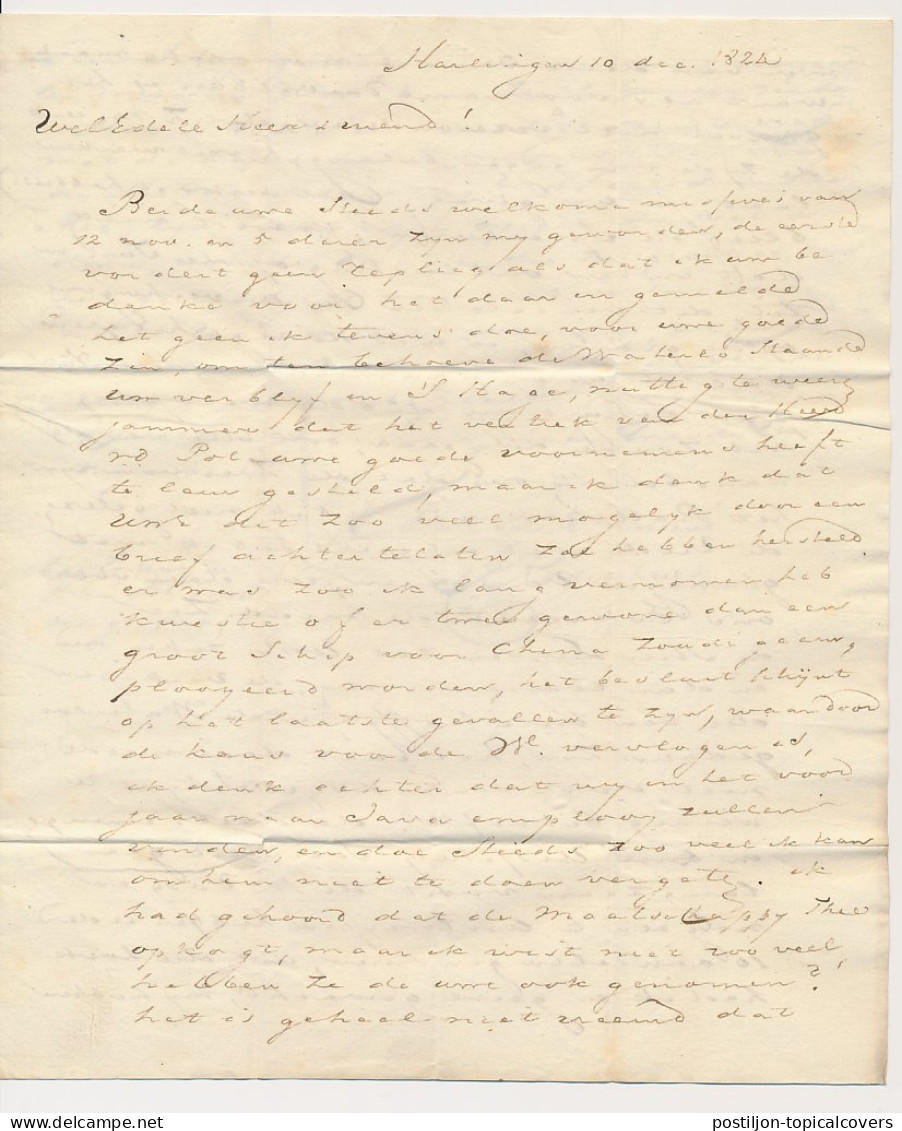 Harlingen 10 dec. 1824
WelEdele Heer & vriend!
Beide uwe steeds welkome missives van
12 nov. en 5 dezer zyn my geworden, de eerste
vordert geen repliq als dat ik um be
danke voor het daar in gemelde
het geen ik tevens doe, voor uwe goede
zin, om ten behoeve de Waterloo staande
um verblyf in S Hage, nuttig te weezen
jammer dat het vertrek van den Heer
Pol uwe goede voornemens heeft
te leur gesteld, maar ik denk dat
UwE dit zoo veel mogelyk door een
brief achter te laten zal hebben hersteld
er was zoo ik lang vernomen heb
kwestie of er twee gewone dan een
groot Schip voor China zoude geem
ployeerd worden, het besluit schynt
op het laatste gevallen te zyn, waardoor
de kans voor de Wl. vervlogen is,
ik denk echter dat wy in het voor
jaar naar Java emplooy zullen
vinden, en doe steeds zoo veel ik kan
om hem niet te doen vergeten. ik
had gehoord dat de Maatschappy Thee
opkogt, maar ik wist niet zoo veel
hebben ze de uwe ook genomen?
het is geheel niet vreemd dat
postiljon-topicalcovers